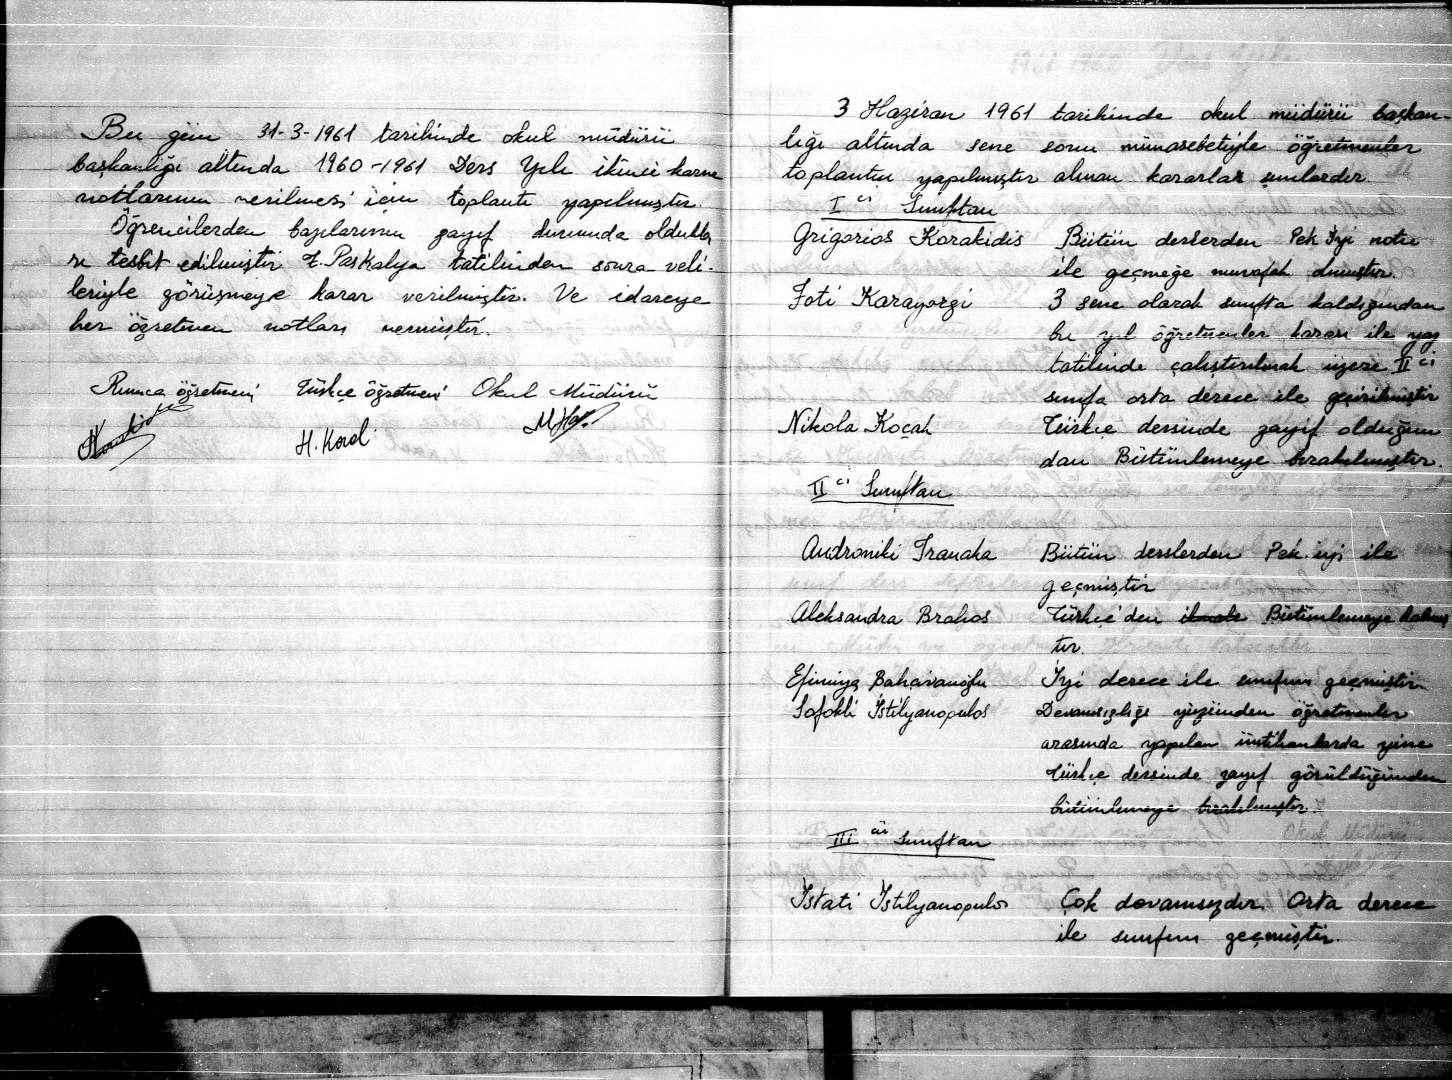 Bu gün 31-3-1961 tarihinde okul müdürü
başkanlığı altında 1960-1961 Ders Yılı ikinci karne
notlarının verilmesi için toplantı yapılmıştır.
Öğrencilerden bazılarının zayıf durumda oldukla
rı tesbit edilmiştir Paskalya tatilinden sonra veli-
leriyle görüşmeye karar verilmiştir. Ve idareye
her öğretmen notları vermiştir.
Rumca öğretmeni Türkçe öğretmeni Okul Müdürü
H. Korel
3 Haziran 1961 tarihinde okul müdürü başkan-
lığı altında sene sonu münasebetiyle öğretmenler
toplantısı yapılmıştır alınan kararlar şunlardır.
I ci Sınıftan
Grigorios Korakidis Bütün derslerden Pek İyi notu
ile geçmeğe muvafak olmuştur.
Foti Karayorgi 3 sene olarak sınıfta kaldığından
bu yıl öğretmenler kararı ile yaz
tatilinde çalıştırılmak üzere II ci
sınıfa orta derece ile geçirilmiştir
Nikola Koçak Türkçe dersinde zayıf olduğun
dan Bütünlemeye bırakılmıştır.
II ci Sınıftan
Androniki Tranaka Bütün derslerden Pek iyi ile
geçmiştir
Aleksandra Brahos Türkçe'den ikmale Bütünlemeye kalmış
tır.
Efimiya Bahçıvanoğlu İyi derece ile sınıfını geçmiştir
Sofokli İstilyanopulos Devamsızlığı yüzünden öğretmenler
arasında yapılan imtihanlarda yine
Türkçe dersinde zayıf görüldüğünden
bütünlemeye bırakılmıştır.
III cü Sınıftan
İstati İstilyanopulos Çok devamsızdır. Orta derece
ile sınıfını geçmiştir.